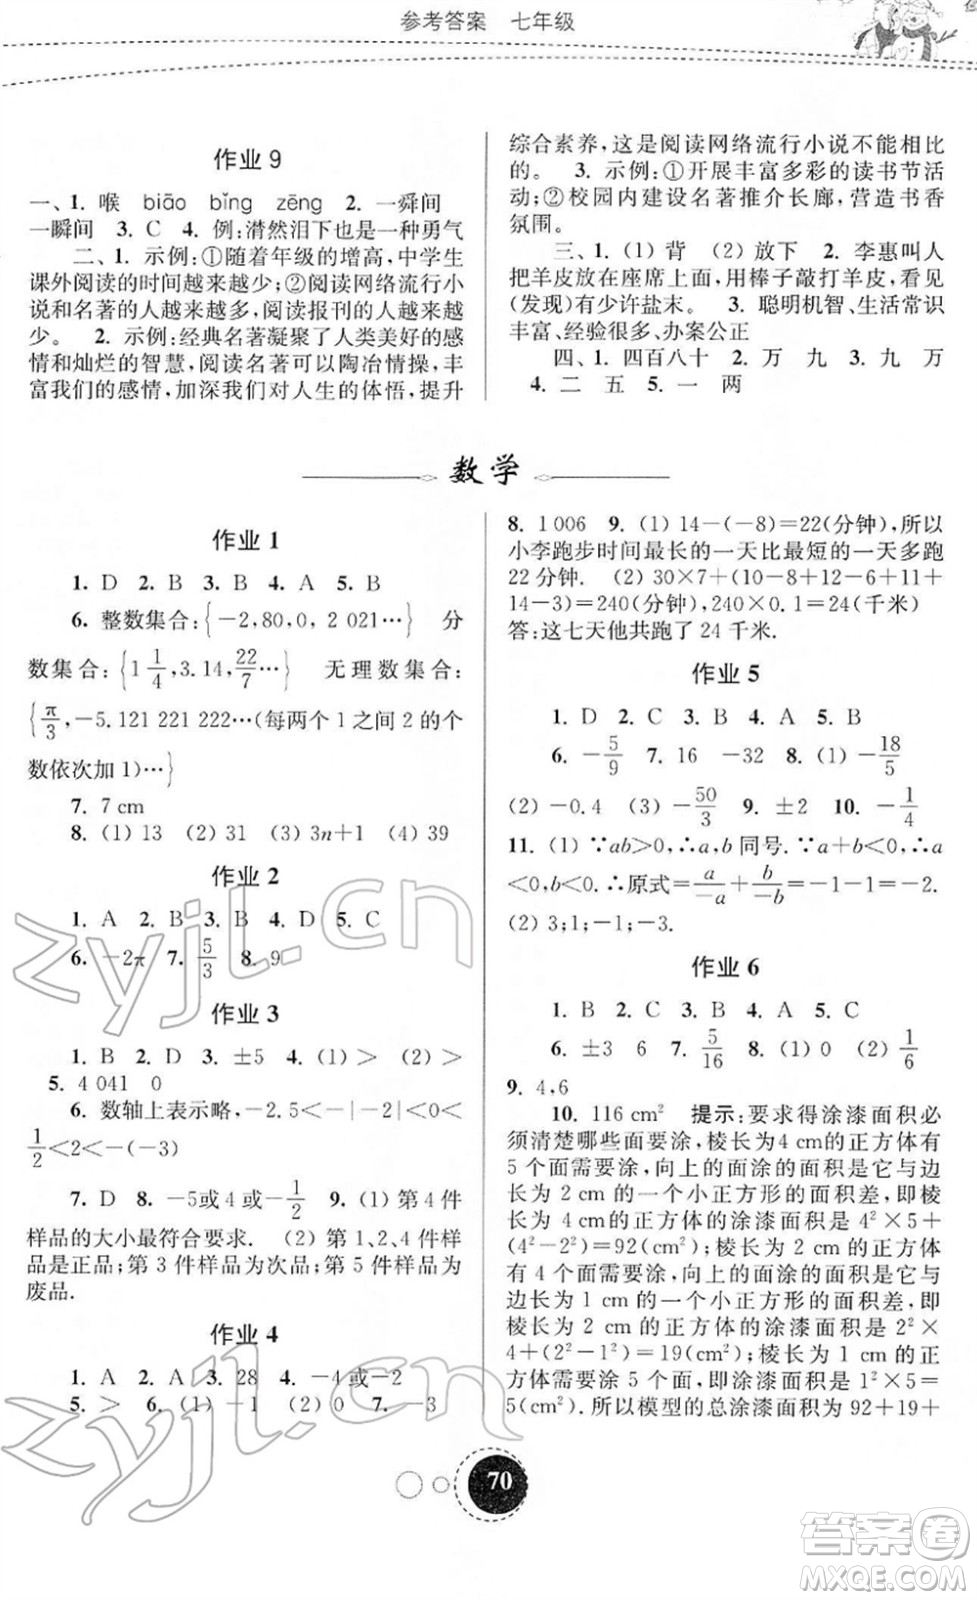 参考答案 七年级
作业 9
一、1. 喉 biāo bǐng zēng 2. 一舜间
一瞬间 3. C 4. 例:潸然泪下也是一种勇气
二、1. 示例:①随着年级的增高,中学生
课外阅读的时间越来越少;②阅读网络流行小
说和名著的人越来越多,阅读报刊的人越来越
少。 2. 示例:经典名著凝聚了人类美好的感
情和灿烂的智慧,阅读名著可以陶冶情操,丰
富我们的感情,加深我们对人生的体悟,提升
综合素养,这是阅读网络流行小说不能相比
的。 3. 示例:①开展丰富多彩的读书节活
动;②校园内建设名著推介长廊,营造书香
氛围。
三、1. (1) 背 (2) 放下 2. 李惠叫人
把羊皮放在座席上面,用棒子敲打羊皮,看见
(发现)有少许盐末。 3. 聪明机智、生活常识
丰富、经验很多、办案公正
四、1. 四百八十 2. 万 九 3. 九 万
4. 二 五 5. 一 两
数学
作业 1
1. D 2. B 3. B 4. A 5. B
6. 整数集合:{-2,80,0, 2 021…} 分
数集合:{1 1/4,3.14,22/7…} 无理数集合:
{π/3,-5.121 221 222…(每两个 1 之间 2 的个
数依次加 1)…}
7. 7 cm
8. (1) 13 (2) 31 (3) 3n+1 (4) 39
作业 2
1. A 2. B 3. B 4. D 5. C
6. -2π 7. 5/3 8. 9
作业 3
1. B 2. D 3. ±5 4. (1) > (2) >
5. 4 041 0
6. 数轴上表示略,-2.5<-|-2|<0<
1/2<2<-(-3)
7. D 8. -5或4或-1/2 9. (1) 第 4 件
样品的大小最符合要求. (2) 第 1、2、4 件样
品是正品;第 3 件样品为次品;第 5 件样品为
废品.
作业 4
1. A 2. A 3. 28 4. -4或-2
5. > 6. (1) -1 (2) 0 7. -3
8. 1 006 9. (1) 14-(-8)=22(分钟),所以
小李跑步时间最长的一天比最短的一天多跑
22 分钟. (2) 30×7+(10-8+12-6+11+
14-3)=240(分钟),240×0.1=24(千米)
答:这七天他共跑了 24 千米.
作业 5
1. D 2. C 3. B 4. A 5. B
6. -5/9 7. 16 -32 8. (1) -18/5
(2) -0.4 (3) -50/3 9. ±2 10. -1/4
11. (1) ∵ab>0,∴a,b 同号. ∵a+b<0,∴a
<0,b<0. ∴原式=a/-a+b/-b=-1-1=-2.
(2) 3;1;-1;-3.
作业 6
1. B 2. C 3. B 4. A 5. C
6. ±3 6 7. 5/16 8. (1) 0 (2) 1/6
9. 4,6
10. 116 cm² 提示:要求得涂漆面积必
须清楚哪些面要涂,棱长为4 cm的正方体有
5 个面需要涂,向上的面涂的面积是它与边
长为 2 cm 的一个小正方形的面积差,即棱
长为 4 cm的正方体的涂漆面积是 4²×5+
(4²-2²)=92(cm²);棱长为 2 cm 的正方体
有 4 个面需要涂,向上的面涂的面积是它与
边长为 1 cm 的一个小正方形的面积差,即
棱长为 2 cm 的正方体的涂漆面积是 2²×
4+(2²-1²)=19(cm²);棱长为 1 cm 的正
方体需要涂 5 个面,即涂漆面积是 1²×5=
5(cm²). 所以模型的总涂漆面积为 92+19+
70
zyjl.cn
zyjl.cn
答案圈
MXQE.COM